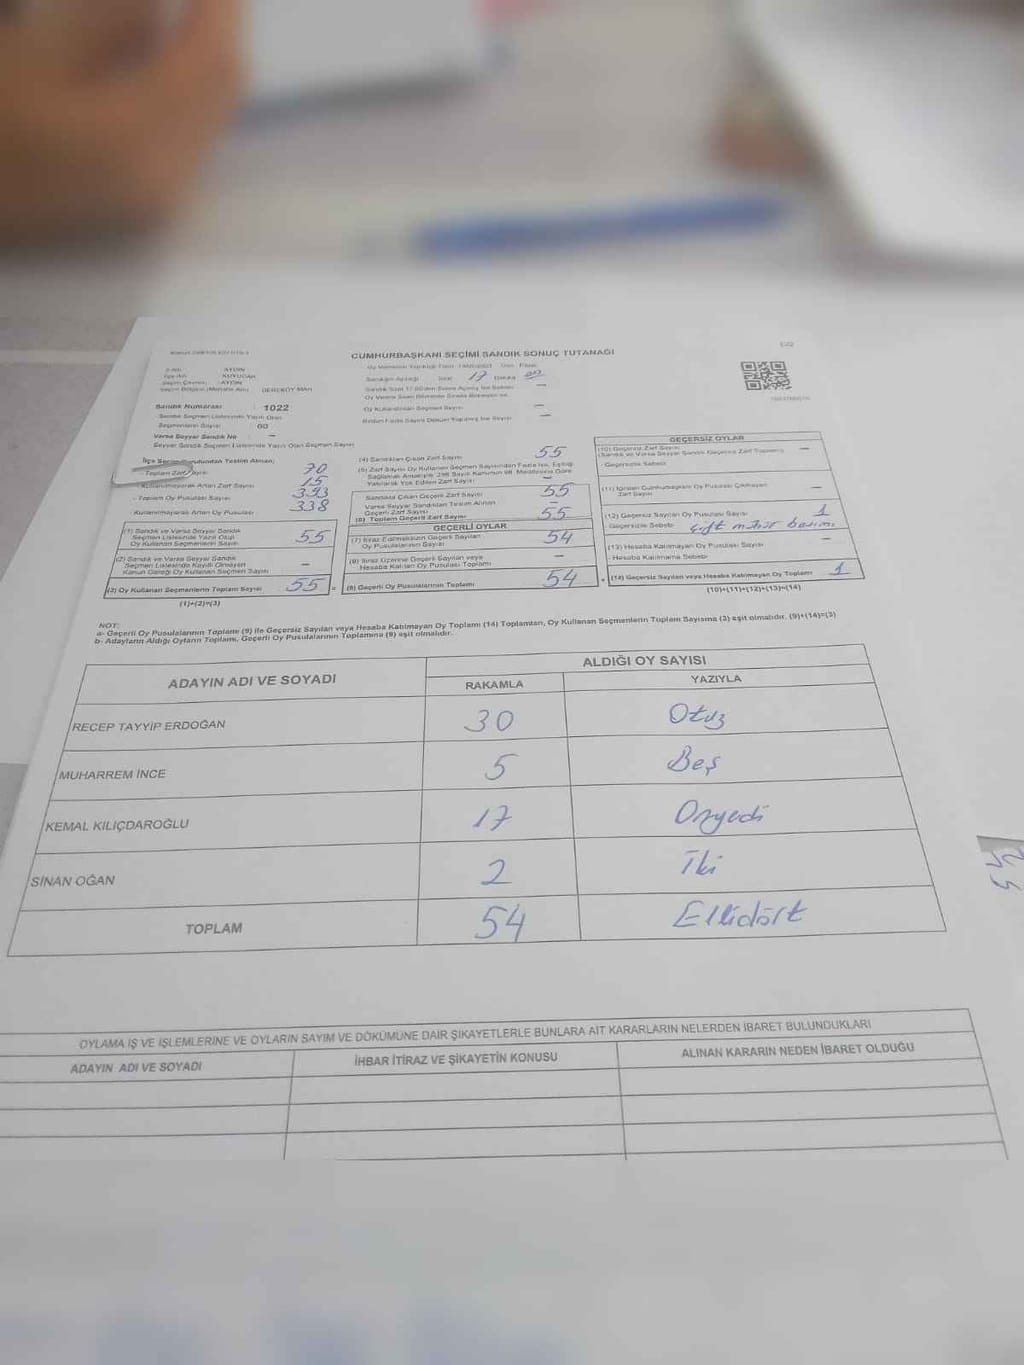 CUMHURBAŞKANI SEÇİMİ SANDIK SONUÇ TUTANAĞI
AYDIN
KUYUCAK
AYDIN
DEREKÖY MAH
Sandık Numarası : 1022
Sandık Seçmen Listesinde Yazılı Olan
Seçmenlerin Sayısı : 60
Varsa Seyyar Sandık No —
Seyyar Sandık Seçmen Listesinde Yazılı Olan Seçmen Sayısı
Sandığın Açıldığı Saat 17 Dakika
Oy Kullandırılan Seçmen Sayısı —
—
İlçe Seçim Kurulundan Teslim Alınan;
- Toplam Zarf Sayısı 70
- Kullanılmayarak Artan Zarf Sayısı 15
- Toplam Oy Pusulası Sayısı 393
- Kullanılmayarak Artan Oy Pusulası 338
(1) Sandık ve Varsa Seyyar Sandık
Seçmen Listesinde Yazılı Olup
Oy Kullanan Seçmenlerin Sayısı 55
(2) Sandık ve Varsa Seyyar Sandık
Seçmen Listesinde Kayıtlı Olmayan
Kanun Gereği Oy Kullanan Seçmen Sayısı —
(3) Oy Kullanan Seçmenlerin Toplam Sayısı 55 =
(1)+(2)=(3)
(4) Sandıktan Çıkan Zarf Sayısı 55
(5) Zarf Sayısı Oy Kullanan Seçmen Sayısından Fazla İse, Eşitliği
Sağlamak Amacıyla 298 Sayılı Kanunun 98. Maddesine Göre
Yakılarak Yok Edilen Zarf Sayısı —
Sandıkta Çıkan Geçerli Zarf Sayısı 55
Varsa Seyyar Sandıktan Teslim Alınan
Geçerli Zarf Sayısı —
(6) Toplam Geçerli Zarf Sayısı 55
GEÇERLİ OYLAR
(7) İtiraz Edilmeksizin Geçerli Sayılan
Oy Pusulalarının Sayısı 54
(8) İtiraz Üzerine Geçerli Sayılan veya
Hesaba Katılan Oy Pusulası Toplamı —
(9) Geçerli Oy Pusulalarının Toplamı 54 +
GEÇERSİZ OYLAR
(10) Geçersiz Zarf Sayısı
(Sandık ve Varsa Seyyar Sandık Geçersiz Zarf Toplamı) —
Geçersizlik Sebebi
(11) İçinden Cumhurbaşkanı Oy Pusulası Çıkmayan
Zarf Sayısı —
(12) Geçersiz Sayılan Oy Pusulası Sayısı 1
Geçersizlik Sebebi çift mühür basımı
(13) Hesaba Katılmayan Oy Pusulası Sayısı —
Hesaba Katılmama Sebebi
(14) Geçersiz Sayılan veya Hesaba Katılmayan Oy Toplamı 1
(10)+(11)+(12)+(13)=(14)
NOT:
a- Geçerli Oy Pusulalarının Toplamı (9) ile Geçersiz Sayılan veya Hesaba Katılmayan Oy Toplamı (14) Toplamları, Oy Kullanan Seçmenlerin Toplam Sayısına (3) eşit olmalıdır. (9)+(14)=(3)
b- Adayların Aldığı Oyların Toplamı, Geçerli Oy Pusulalarının Toplamına (9) eşit olmalıdır.
ADAYIN ADI VE SOYADI ALDIĞI OY SAYISI
RAKAMLA YAZIYLA
RECEP TAYYİP ERDOĞAN 30 Otuz
MUHARREM İNCE 5 Beş
KEMAL KILIÇDAROĞLU 17 Onyedi
SİNAN OĞAN 2 İki
TOPLAM 54 Ellidört
OYLAMA İŞ VE İŞLEMLERİNE VE OYLARIN SAYIM VE DÖKÜMÜNE DAİR ŞİKAYETLERLE BUNLARA AİT KARARLARIN NELERDEN İBARET BULUNDUKLARI
ADAYIN ADI VE SOYADI İHBAR İTİRAZ VE ŞİKAYETİN KONUSU ALINAN KARARIN NEDEN İBARET OLDUĞU